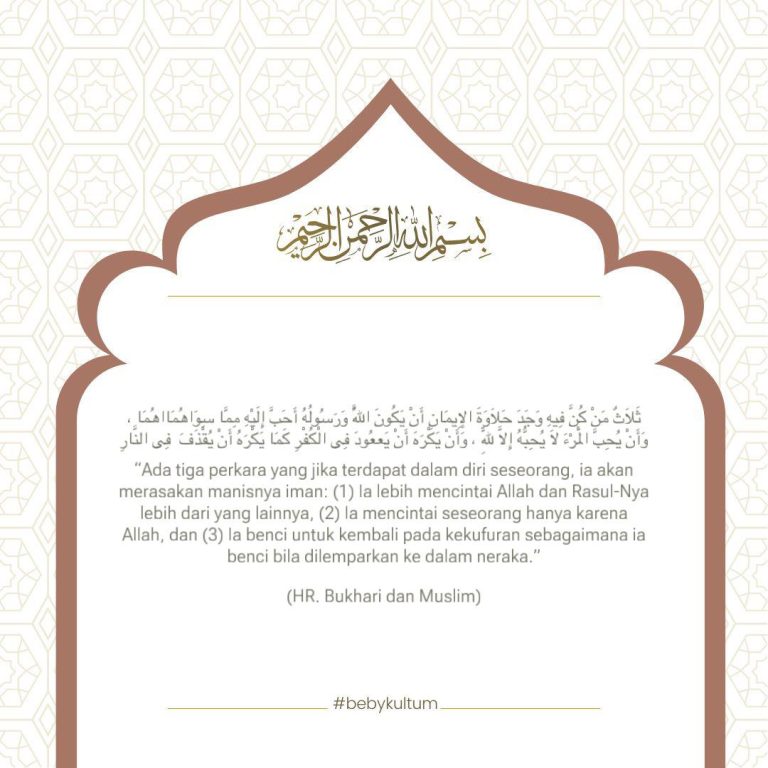 بِسْمِ اللهِ الرَّحْمَنِ الرَّحِيْمِ
ثَلَاثٌ مَنْ كُنَّ فِيهِ وَجَدَ حَلَاوَةَ الإِيمَانِ أَنْ يَكُونَ اللهُ وَرَسُولُهُ أَحَبَّ إِلَيْهِ مِمَّا سِوَاهُمَااهُمَا ،
وَأَنْ يُحِبَّ الْمَرْءَ لاَ يُحِبُّهُ إِلاَّ لِلَّهِ ، وَأَنْ يَكْرَهَ أَنْ يَععُودَ فِى الْكُفْرِ كَمَا يَكْرَهُ أَنْ يُقْذَفَ فِى النَّارِ
“Ada tiga perkara yang jika terdapat dalam diri seseorang, ia akan
merasakan manisnya iman: (1) Ia lebih mencintai Allah dan Rasul-Nya
lebih dari yang lainnya, (2) Ia mencintai seseorang hanya karena
Allah, dan (3) Ia benci untuk kembali pada kekufuran sebagaimana ia
benci bila dilemparkan ke dalam neraka.”
(HR. Bukhari dan Muslim)
#bebykultum